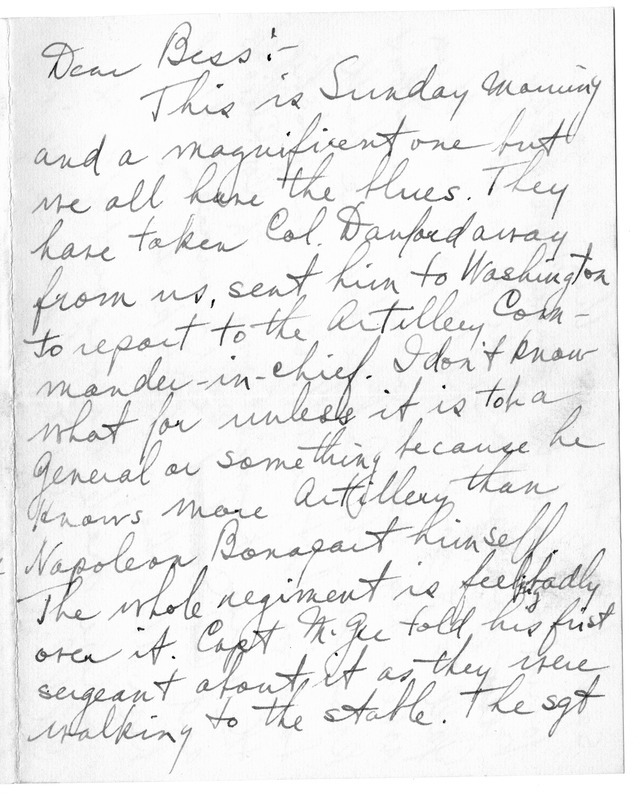 Dear Bess:-
This is Sunday Morning
and a magnificent one but
we all have the blues. They
have taken Col. Danford away
from us, sent him to Washington
to report to the Artillery Com-
mander-in-chief. I don't know
what for unless it is to be a
General or something because he
knows more Artillery than
Napoleon Bonapart himself
The whole regiment is feeling badly
over it. Capt McGee told his first
sergeant about it as they were
walking to the stable. The sgt